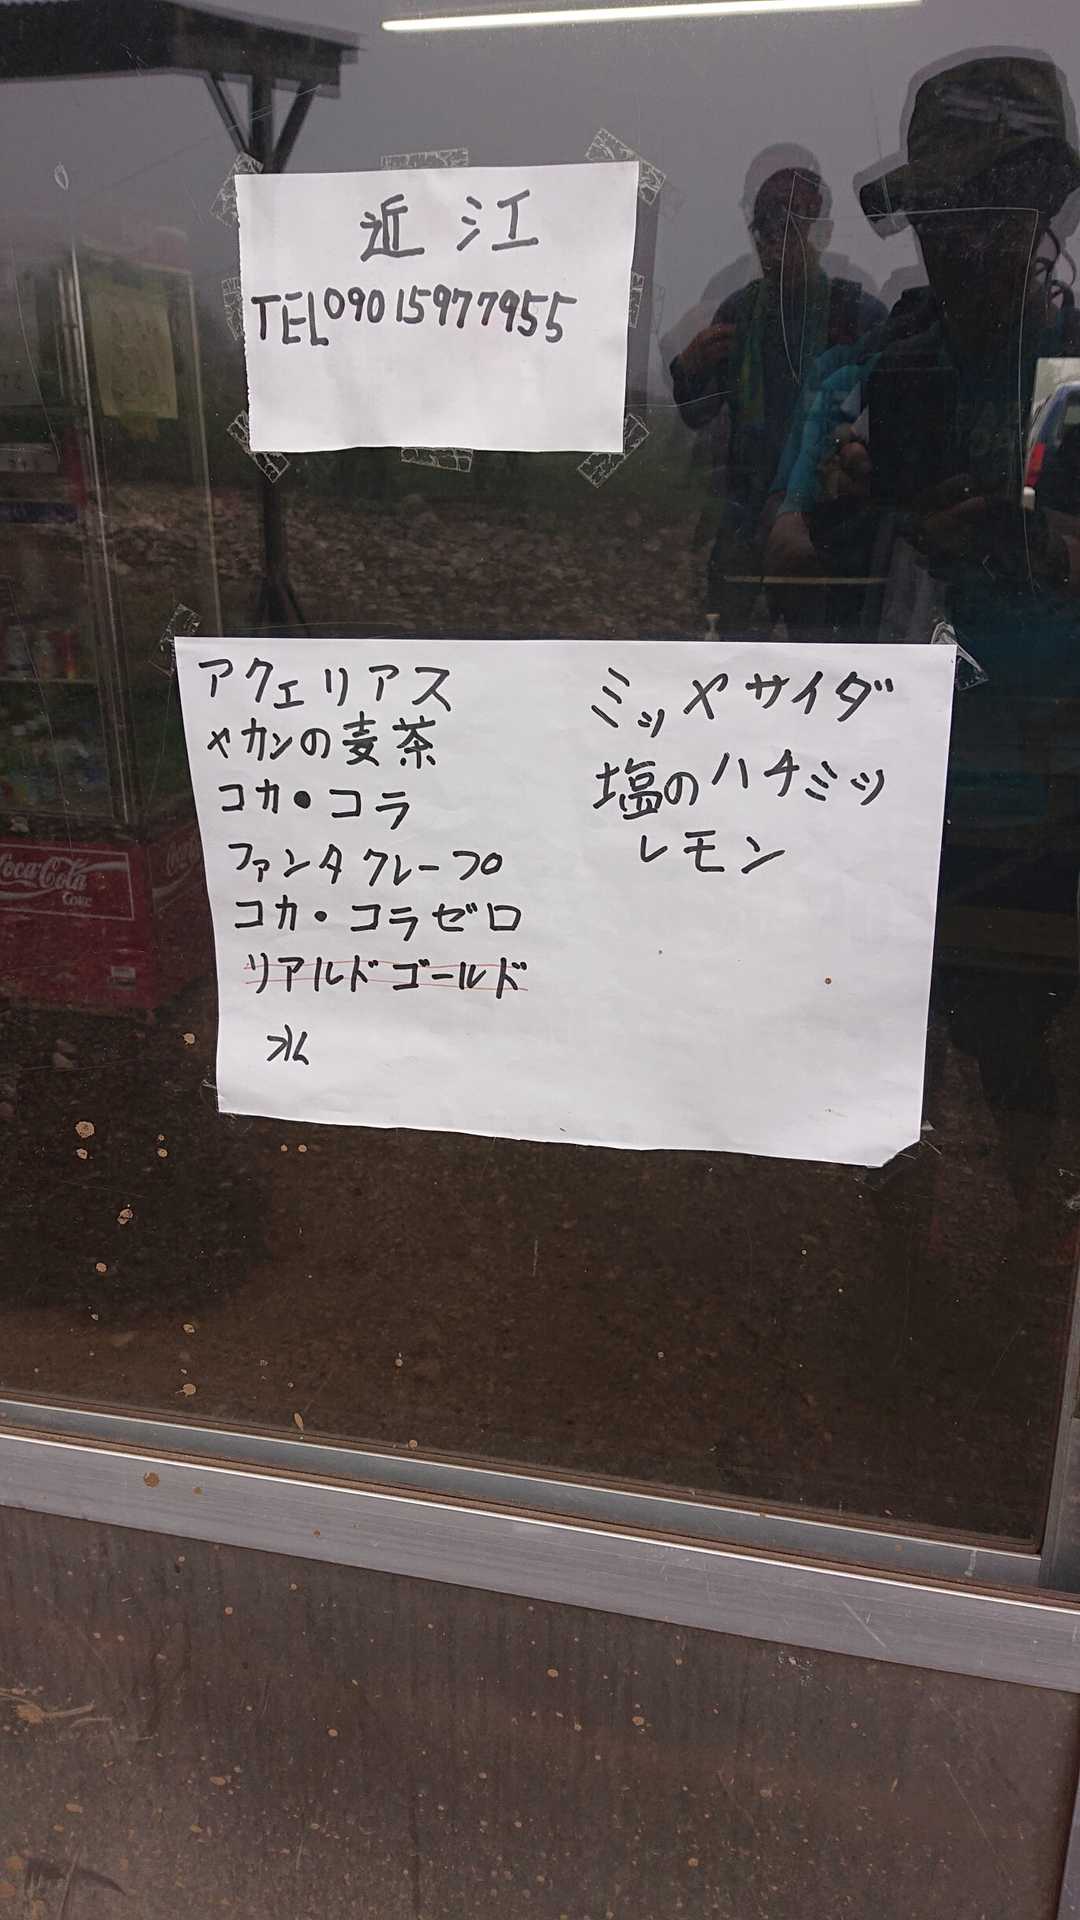 近江
TEL09015977955
アクェリアス
ヤカンの麦茶
コカ・コラ
ファンタクレープフ゜
コカ・コラゼロ
リアルドゴールド
水
ミッヤサイダ
塩のハチミツ
レモン
Coca-Cola
Coke